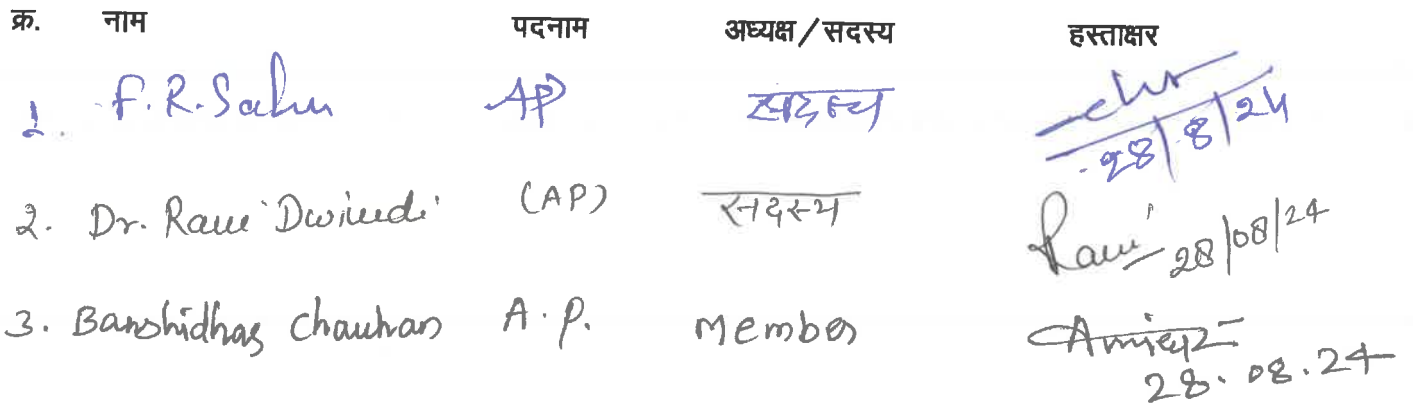 क्र. नाम पदनाम अध्यक्ष/सदस्य हस्ताक्षर
1. F. R. Sahu AP सदस्य 28/8/24
2. Dr. Ravi Dwivedi (AP) सदस्य Ravi 28/08/24
3. Banshidhar Chauhan A.P. Member 28.08.24